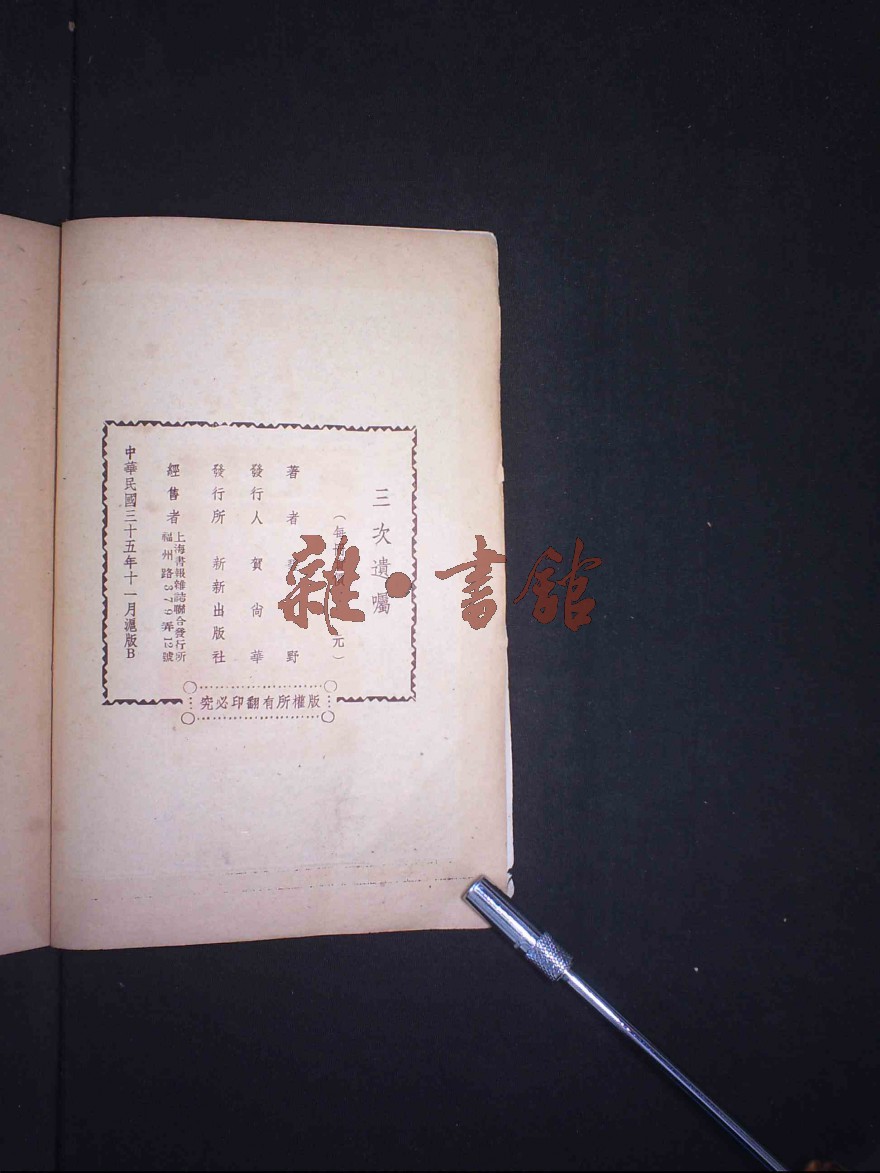 三次遺囑
(每 元)
著者 野
發行人 賀尙華
發行所 新新出版社
經售者 上海書報雜誌聯合發行所
福州路379弄12號
中華民國三十五年十一月滬版B
版權所有翻印必究
雜·書館